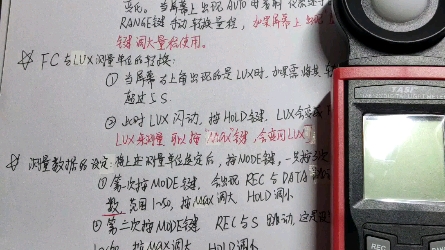 变化。当屏幕上出现AUTO
RANGE键手动转换量程,如果屏幕上出现
键调大量程使用。
☆ FC与LUX测量单位的转换:
① 当屏幕右上角出现的是LUX时,如果需将其
超过5S.
② 此时LUX闪动,按HOLD键,LUX会变成
LUX来测量 可以按"MAX"键,会变回LUX
☆ 测量数据的设定:将上述测量单位选定后,按MODE键,一共
① 第一次按MODE键,会出现REC与DATA
数 范围1~50,按MAX调大,HOLD调小
② 第二次按MODE键 REC与S
按MAX调大 HOLD调小
TASI
REC